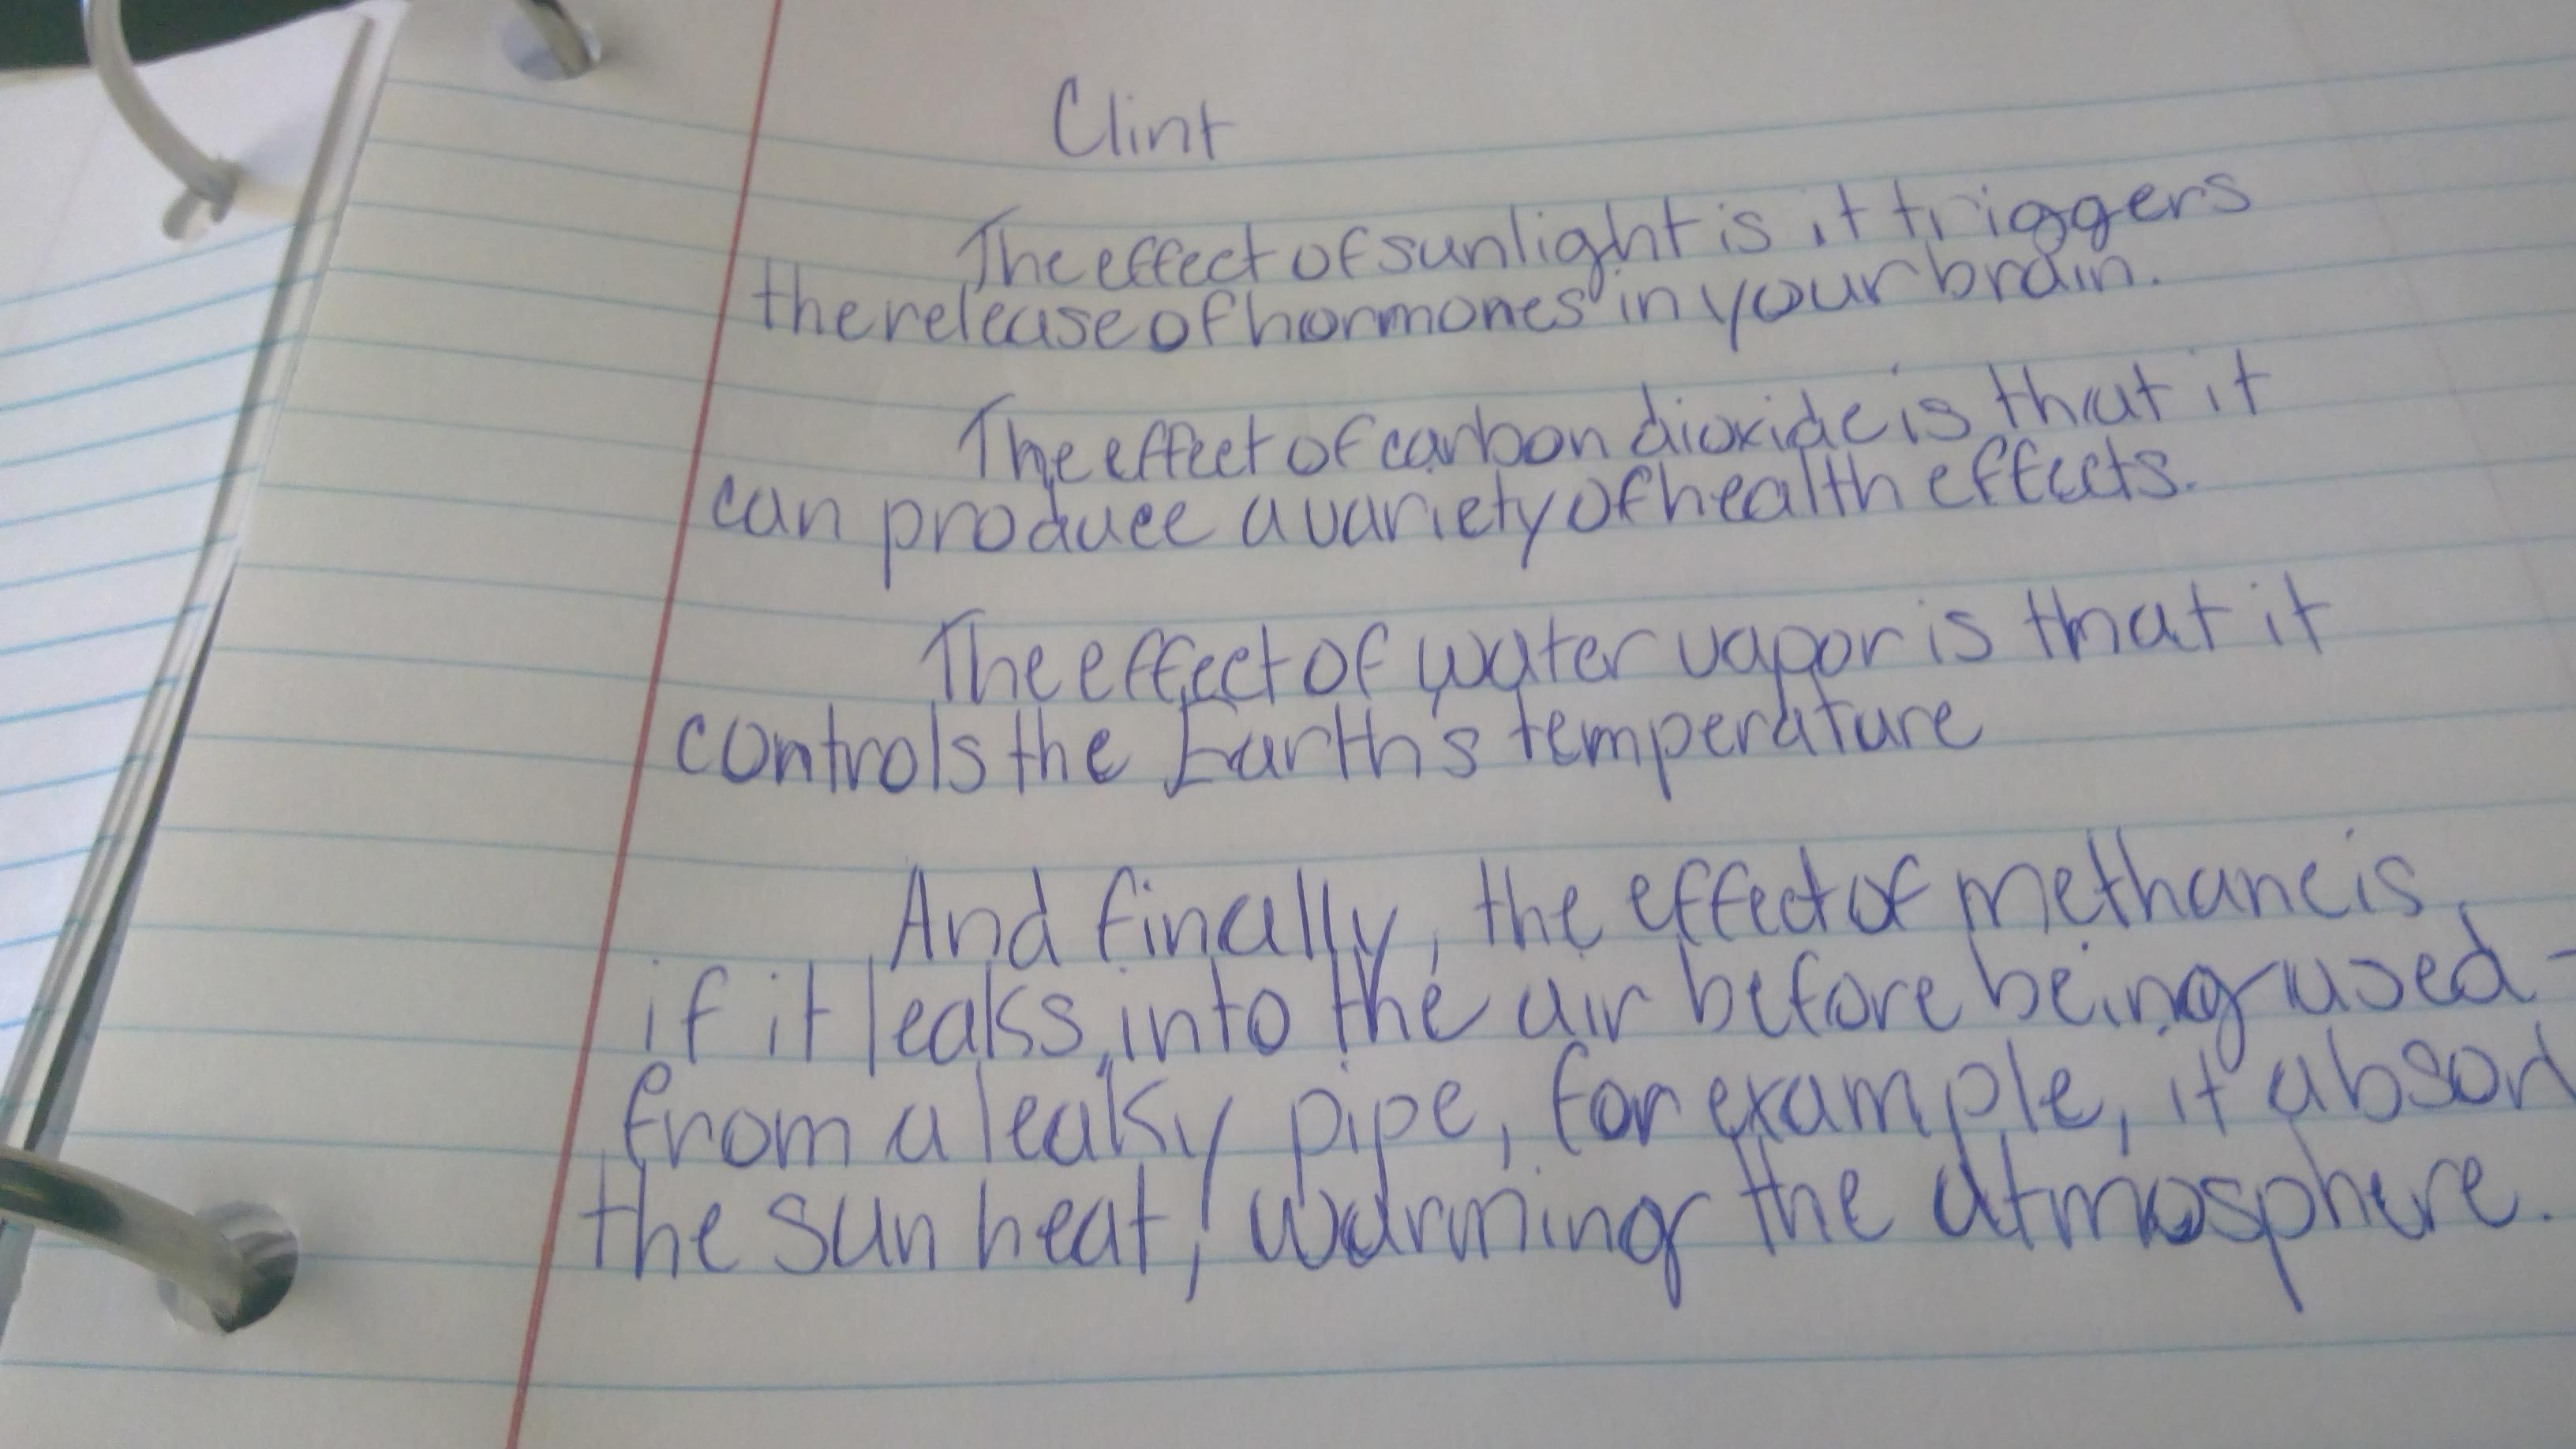 Clint
The effect of sunlight is it triggers
the release of hormones in your brain.
The effect of carbon dioxide is that it
can produce a variety of health effects.
The effect of water vapor is that it
controls the Earth's temperature
And finally, the effect of methane is,
if it leaks into the air before being used -
from a leaky pipe, for example, it absor
the sun heat, warming the atmosphere.